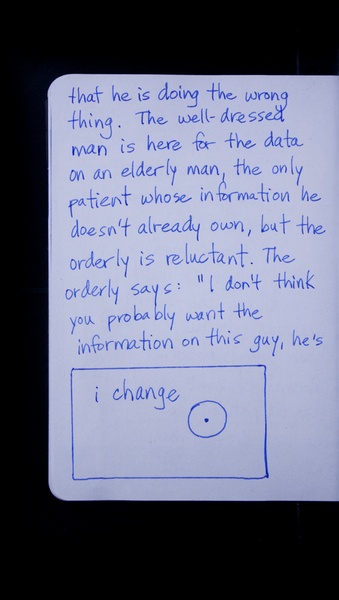 that he is doing the wrong
thing. The well-dressed
man is here for the data
on an elderly man, the only
patient whose information he
doesn't already own, but the
orderly is reluctant. The
orderly says: "I don't think
you probably want the
information on this guy, he's
i change